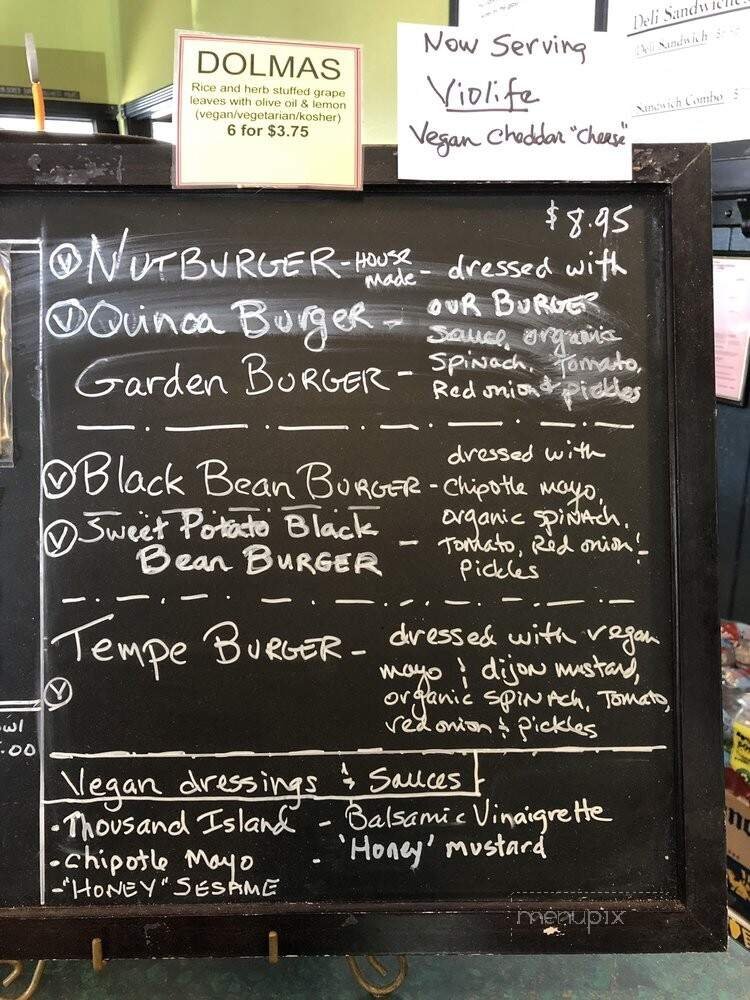 DOLMAS
Rice and herb stuffed grape
leaves with olive oil & lemon
(vegan/vegetarian/kosher)
6 for $3.75
Now Serving
Violife
Vegan Cheddar "cheese"
Deli Sandwiches
Deli Sandwich
Sandwich Combo
$8.95
Ⓥ NUTBURGER - HOUSE made - dressed with
Ⓥ Quinoa Burger - OUR BURGER
sauce, organic
Garden BURGER - Spinach, Tomato,
Red onion & pickles
Ⓥ Black Bean BURGER - dressed with
chipotle mayo,
Ⓥ Sweet Potato Black
Bean BURGER - organic spinach,
Tomato, Red onion &
pickles
Tempe BURGER - dressed with vegan
mayo & dijon mustard,
Ⓥ organic spinach, Tomato,
red onion & pickles
Vegan dressings & Sauces
• Thousand Island - Balsamic Vinaigrette
• Chipotle Mayo - 'Honey' mustard
- "HONEY" SESAME
.00
menupix